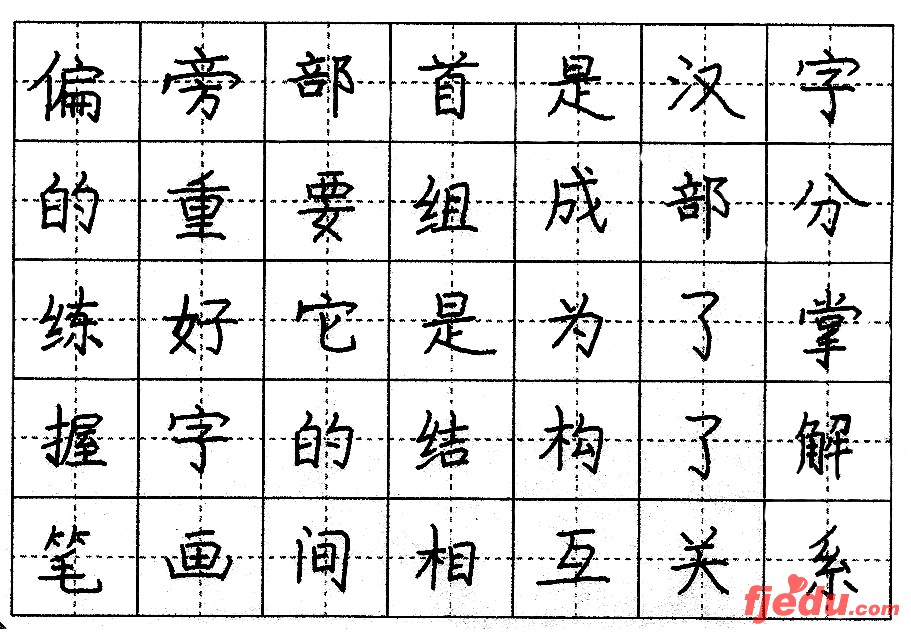 偏旁部首是汉字
的重要组成部分
练好它是为了掌
握字的结构了解
笔画间相互关系
fjedu.com